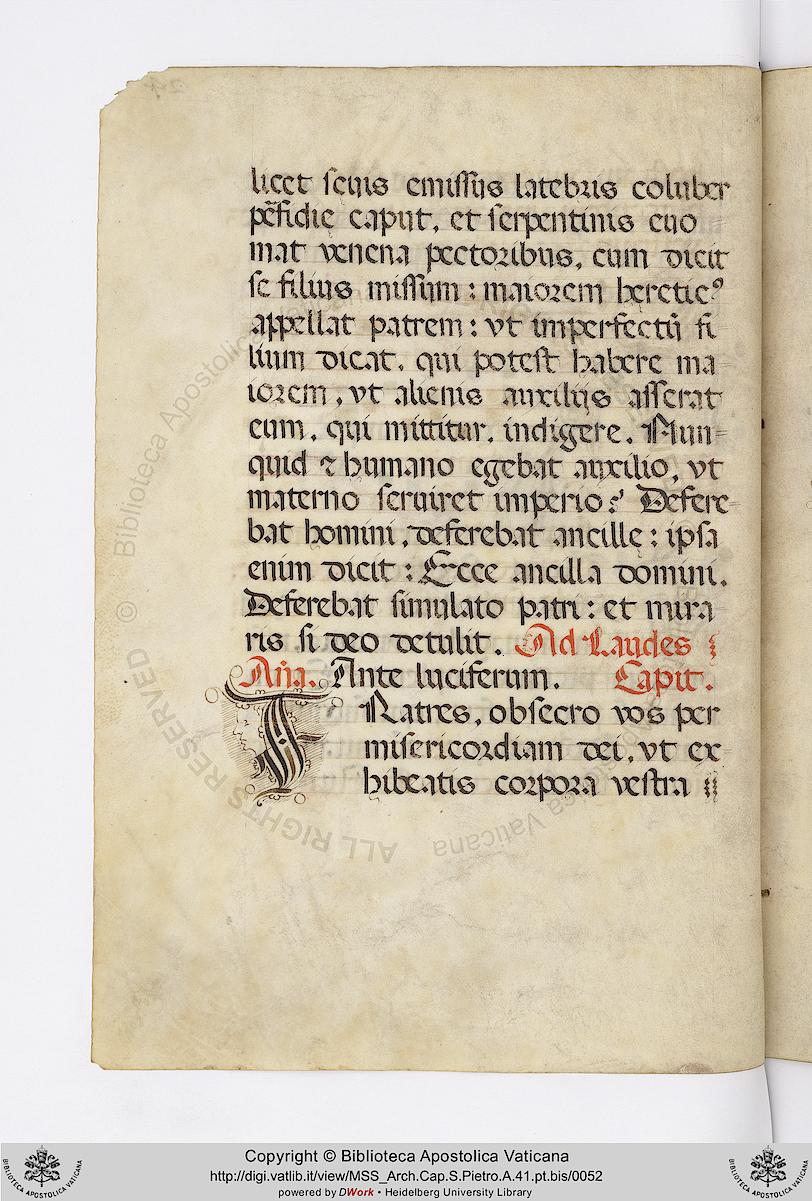 licet seuis emissijs latebris coluber
pẽfidie caput, et serpentinis euo
mat venena pectoribus, cum dicit
se filius missum : maiorem heretic⁹
appellat patrem : vt imperfectũ fi
lium dicat, qui potest habere ma
iorem, vt alienis auxilijs asserat
eum, qui mittitur, indigere. Nun-
quid ⁊ humano egebat auxilio, vt
materno seruiret imperio? Defere
bat homini, deferebat ancille : ipsa
enim dicit : Ecce ancilla domini.
Deferebat simulato patri : et mira
ris si deo detulit. Ad Laudes
Aña. Ante luciferum. Capit.
FRatres, obsecro vos per
misericordiam dei, vt ex
hibeatis corpora vestra
© Biblioteca Apostolica Vaticana
ALL RIGHTS RESERVED
Copyright © Biblioteca Apostolica Vaticana
http://digi.vatlib.it/view/MSS_Arch.Cap.S.Pietro.A.41.pt.bis/0052
powered by DWork • Heidelberg University Library
BIBLIOTECA APOSTOLICA VATICANA
BIBLIOTECA APOSTOLICA VATICANA